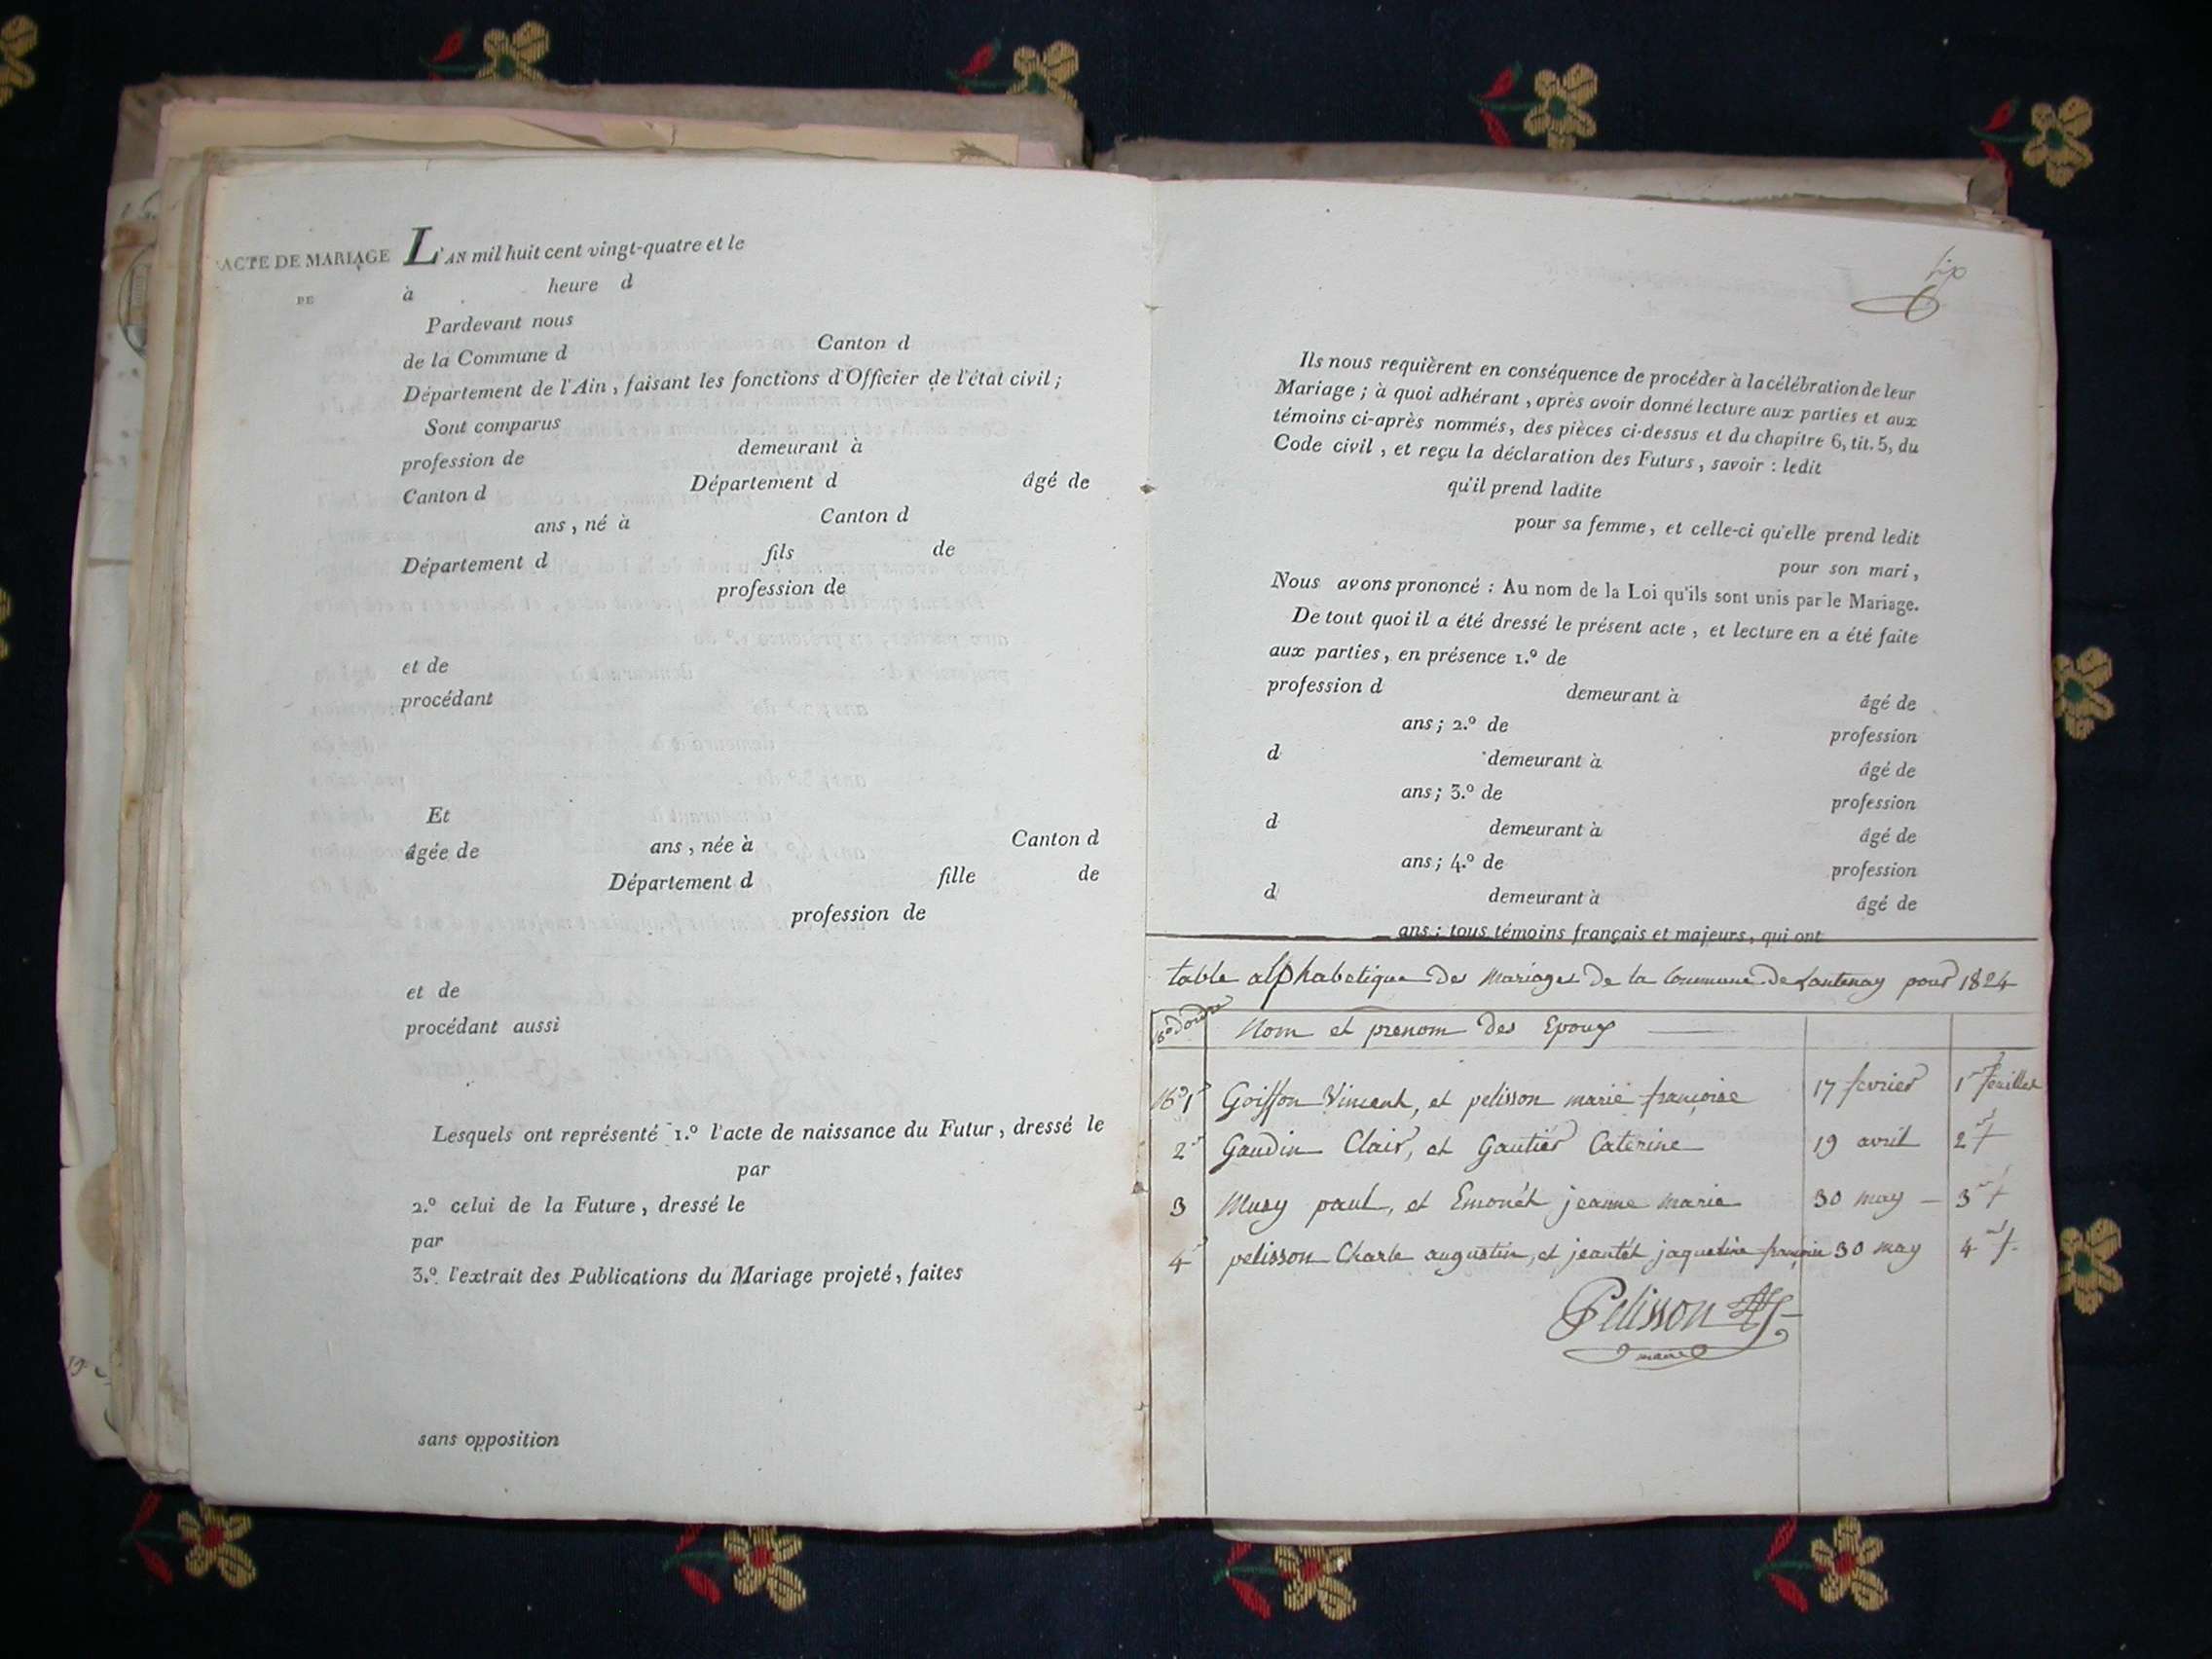 ACTE DE MARIAGE
DE
L'AN mil huit cent vingt-quatre et le
à heure d
Pardevant nous
de la Commune d Canton d
Département de l'Ain, faisant les fonctions d'Officier de l'état civil;
Sont comparus
profession de demeurant à
Canton d Département d âgé de
ans, né à Canton d
Département d fils de
profession de
et de
procédant
Et
âgée de ans, née à Canton d
Département d fille de
profession de
et de
procédant aussi
Lesquels ont représenté 1.º l'acte de naissance du Futur, dressé le
par
2.º celui de la Future, dressé le
par
3.º l'extrait des Publications du Mariage projeté, faites
sans opposition
six
Ils nous requièrent en conséquence de procéder à la célébration de leur
Mariage; à quoi adhérant, après avoir donné lecture aux parties et aux
témoins ci-après nommés, des pièces ci-dessus et du chapitre 6, tit. 5, du
Code civil, et reçu la déclaration des Futurs, savoir : ledit
qu'il prend ladite
pour sa femme, et celle-ci qu'elle prend ledit
pour son mari,
Nous avons prononcé : Au nom de la Loi qu'ils sont unis par le Mariage.
De tout quoi il a été dressé le présent acte, et lecture en a été faite
aux parties, en présence 1.º de
profession d demeurant à âgé de
ans; 2.º de profession
d demeurant à âgé de
ans; 3.º de profession
d demeurant à âgé de
ans; 4.º de profession
d demeurant à âgé de
ans; tous témoins français et majeurs, qui ont
table alphabetique des mariages de la Commune de Lantenay pour 1824
nº dordre Nom et prenom des Epoux
nº 1 Goiffon Vincent, et pelisson marie françoise 17 fevrier 1er feuillet
2 Gaudin Clair, et Gautier Caterine 19 avril 2 f
3 Musy paul, et Emonét jeanne marie 30 may 3 f
4 pelisson Charle augustin, et jeantét jaqueline françoise 30 may 4 f
Pelisson
maire